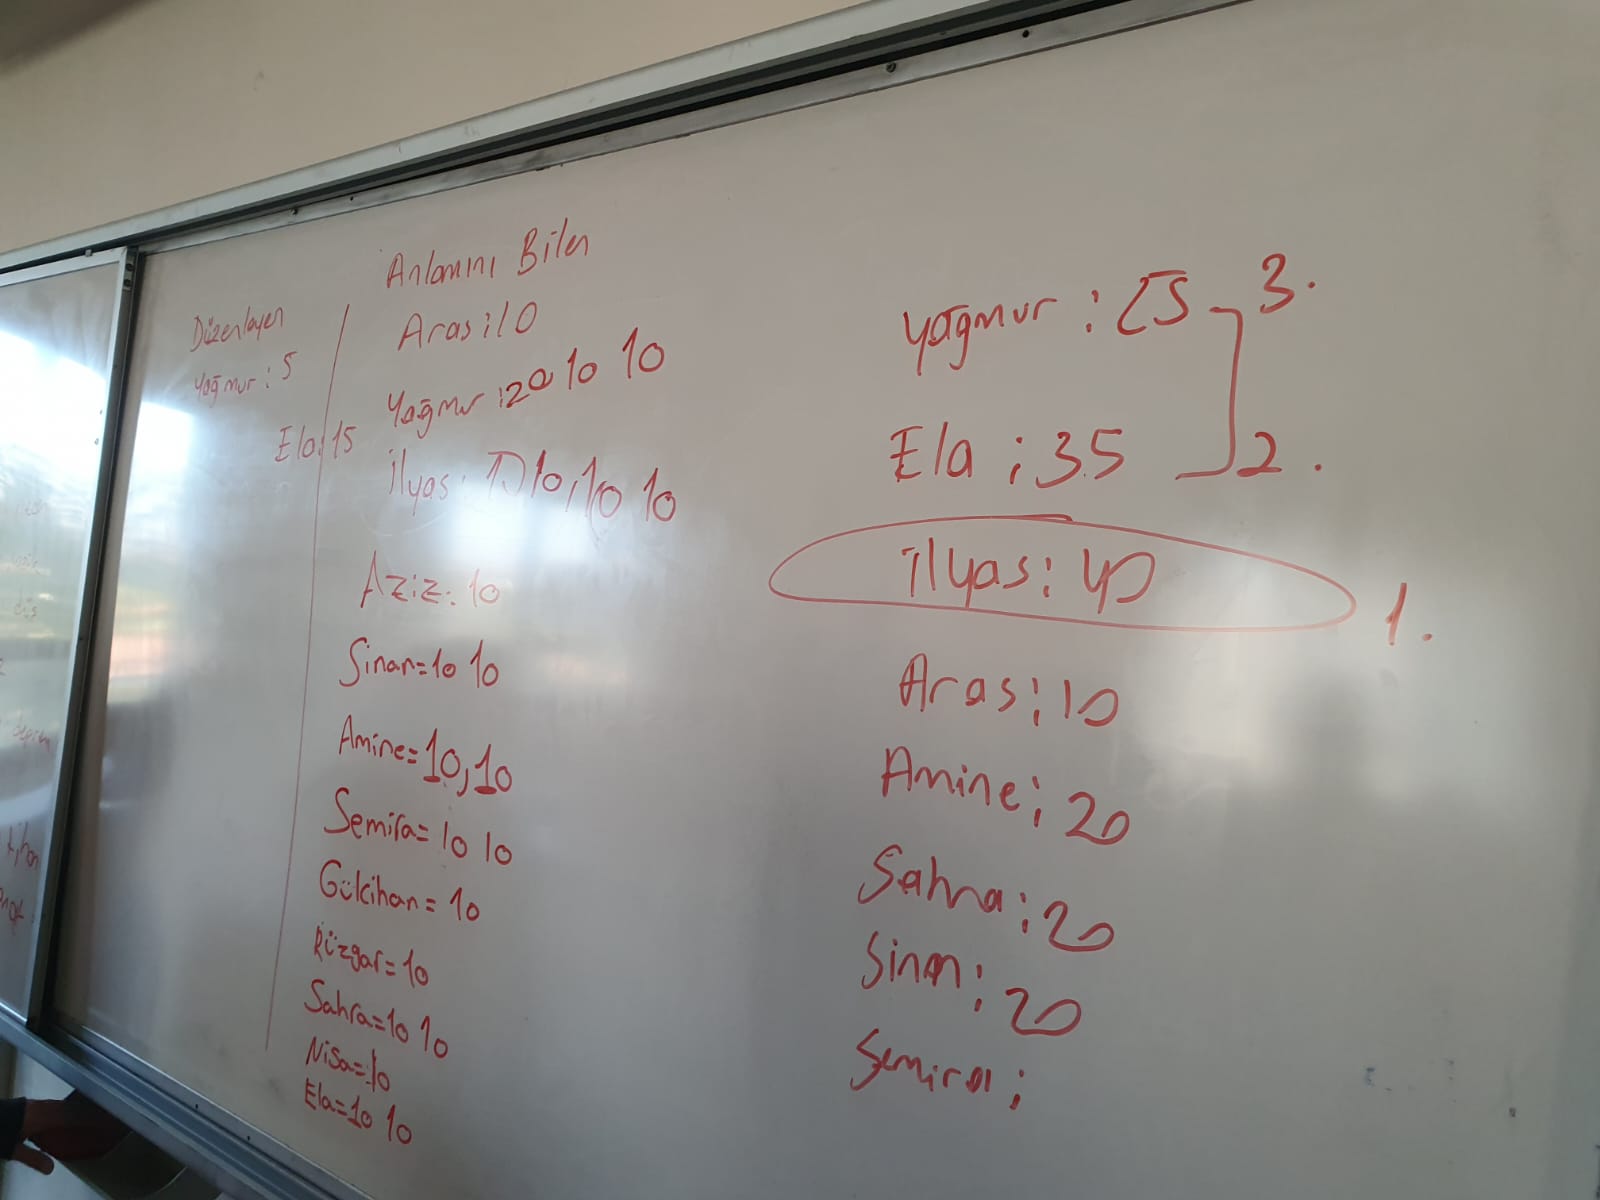 Düzenleyen
Yağmur : 5
Ela: 15
Anlamını Bilen
Aras : 10
Yağmur : 20 10 10
İlyas : 10 10, 10 10
Aziz: 10
Sinan= 10 10
Amine= 10, 10
Semira= 10 10
Gülcihan = 10
Rüzgar= 10
Sahra= 10 10
Nisa= 10
Ela= 10 10
Yağmur : 25 3.
Ela : 35 2.
İlyas : 40 1.
Aras : 10
Amine : 20
Sahra : 20
Sinan : 20
Semira :